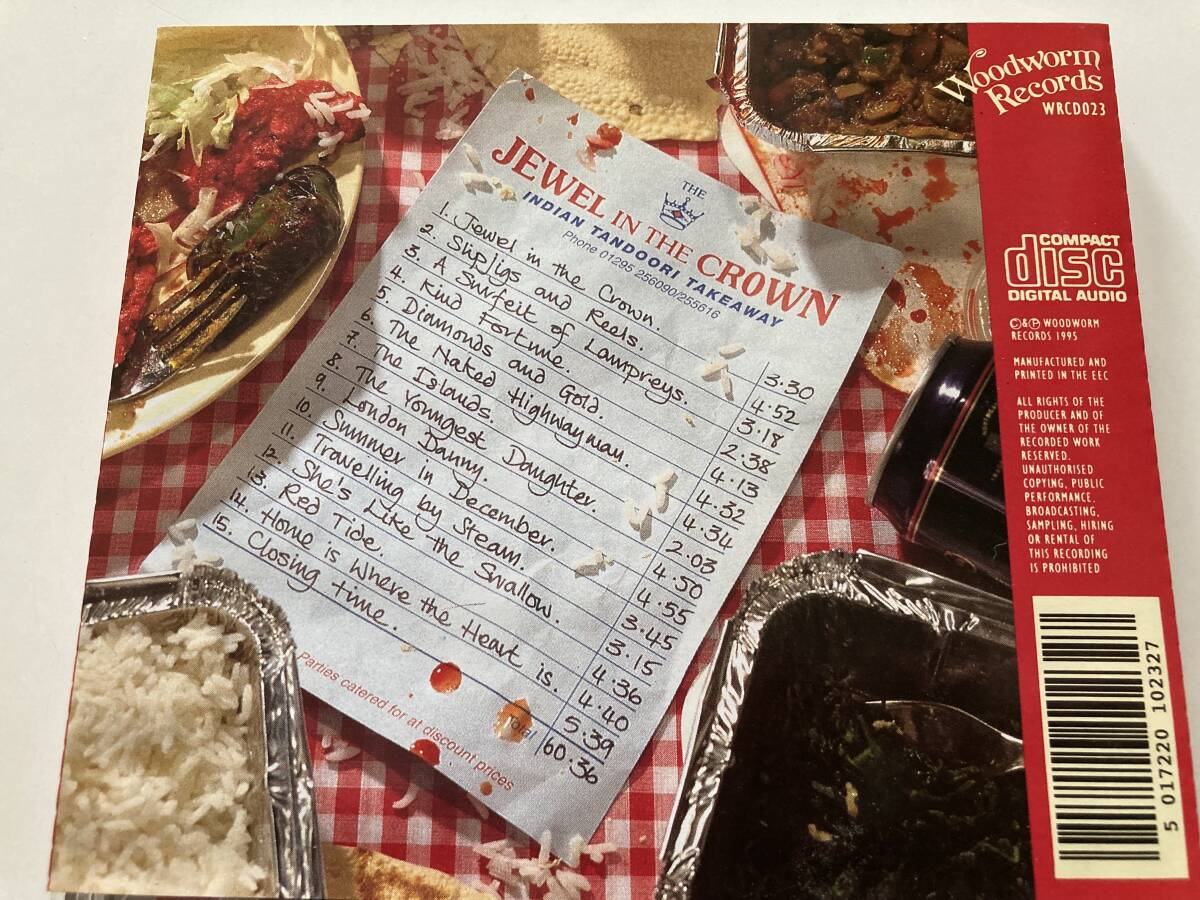 Woodworm
Records
WRCD023
THE
JEWEL IN THE CROWN
INDIAN TANDOORI TAKEAWAY
Phone 01295 256090/255616
1. Jewel in the Crown. 3.30
2. SlipJigs and Reels. 4.52
3. A Surfeit of Lampreys. 3.18
4. Kind Fortune. 2.38
5. Diamonds and Gold. 4.13
6. The Naked Highwayman. 4.32
7. The Islands. 4.34
8. The Youngest Daughter. 2.03
9. London Danny. 4.50
10. Summer in December. 4.55
11. Travelling by Steam. 3.45
12. She's Like the Swallow. 3.15
13. Red Tide. 4.36
14. Home is Where the Heart is. 4.40
15. Closing time. 5.39
Total 60.36
Parties catered for at discount prices
COMPACT
disc
DIGITAL AUDIO
©&℗ WOODWORM
RECORDS 1995
MANUFACTURED AND
PRINTED IN THE EEC
ALL RIGHTS OF THE
PRODUCER AND OF
THE OWNER OF THE
RECORDED WORK
RESERVED.
UNAUTHORISED
COPYING, PUBLIC
PERFORMANCE,
BROADCASTING,
SAMPLING, HIRING
OR RENTAL OF
THIS RECORDING
IS PROHIBITED
5 017220 102327